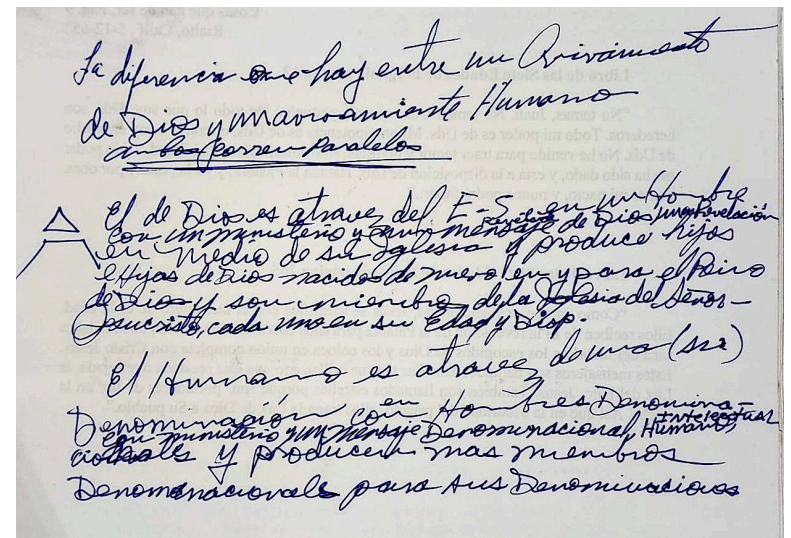 La diferencia que hay entre un Avivamiento
de Dios y un avivamiento Humano
ambos corren Paralelos
El de Dios es atraves del E-S en un Hombre
con un ministerio y un mensaje revelado de Dios, una Revelación
en medio de su Iglesia y produce hijos
e Hijas de Dios nacidos de nuevo en y para el Reino
de Dios y son miembros de la Iglesia del Señor
Jesucristo, cada uno en su Edad y Disp.
El Humano es atraves de una (su)
Denominación con en Hombres Denomina-
con ministerio y un mensaje Denominacional, Humano, Intelectual
cionales y producen mas miembros
Denominacionals para sus Denominacions